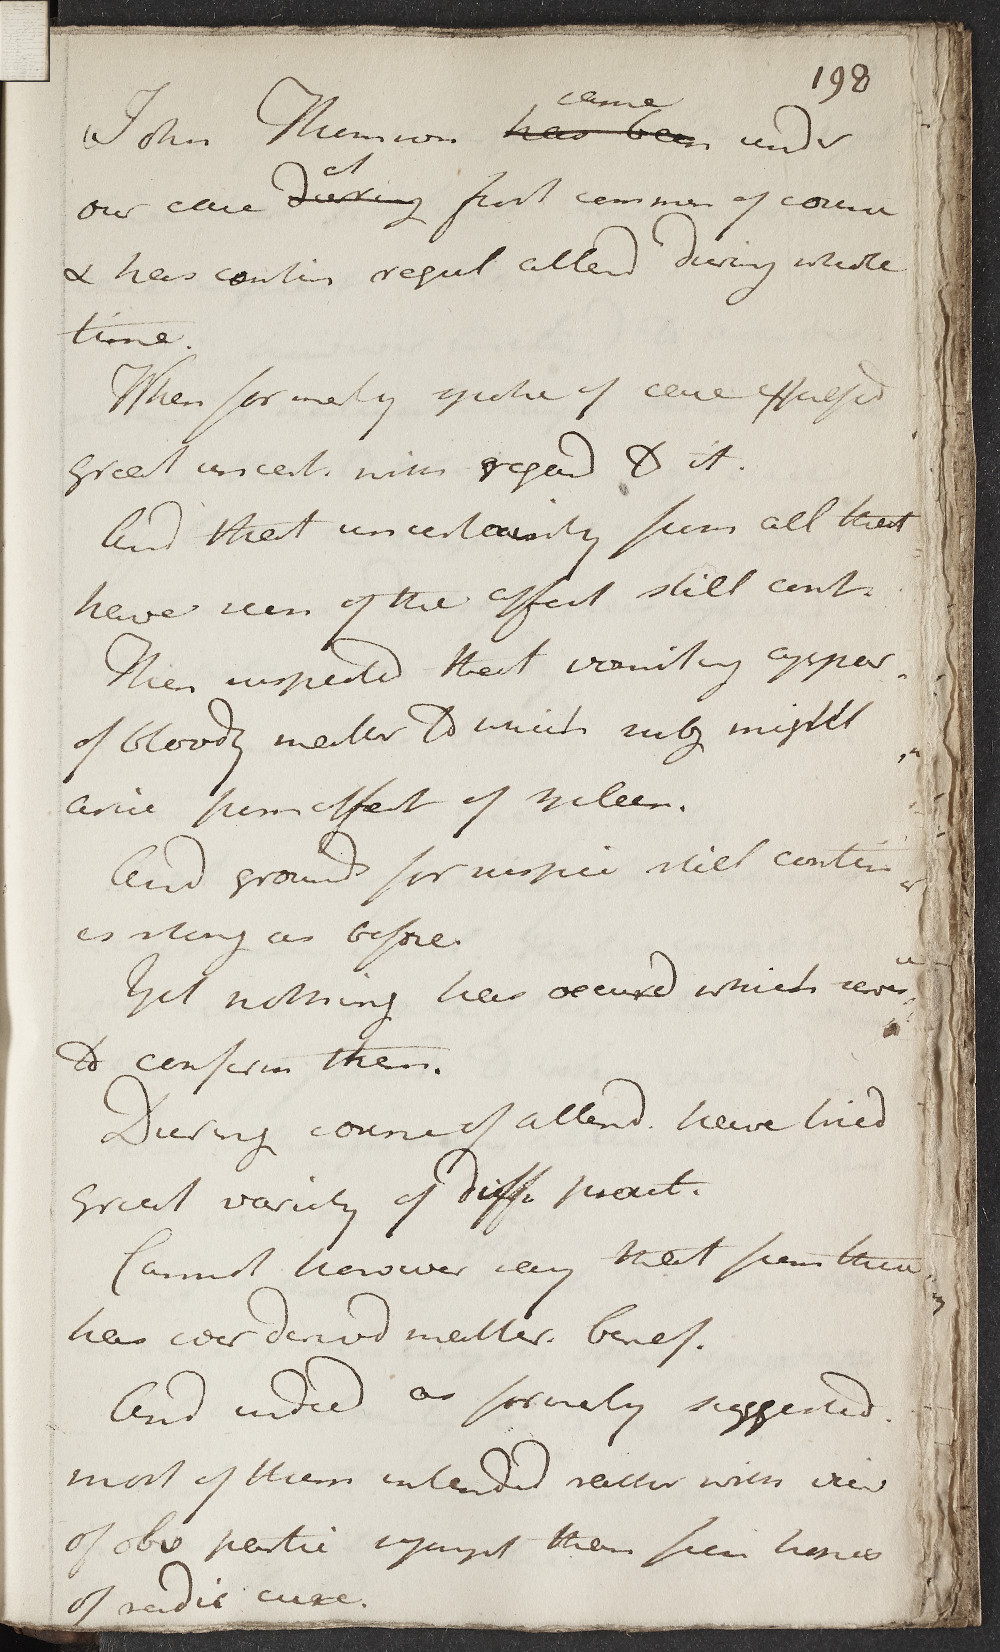 198
came
John Thomson has been under
at
our care during first commen of course
& has contin regul attend during whole
time.
When formerly spoke of case express'd
great uncert. with regard to it.
And that uncertainty from all that
have seen of the affect still cont.
Then suspected that vomiting appear
of bloody matter to which subj might
arise from affect of spleen.
And grounds for suspici still contin
as strong as before.
Yet nothing has occured which serves
to confirm them.
During course of attend. have tried
great variety of diff. pract.
Cannot however say that from them
has ever derived matter. benef.
And indeed as formerly suggested.
most of them intended rather with view
of obv partic sympt than from hopes
of radic cure.